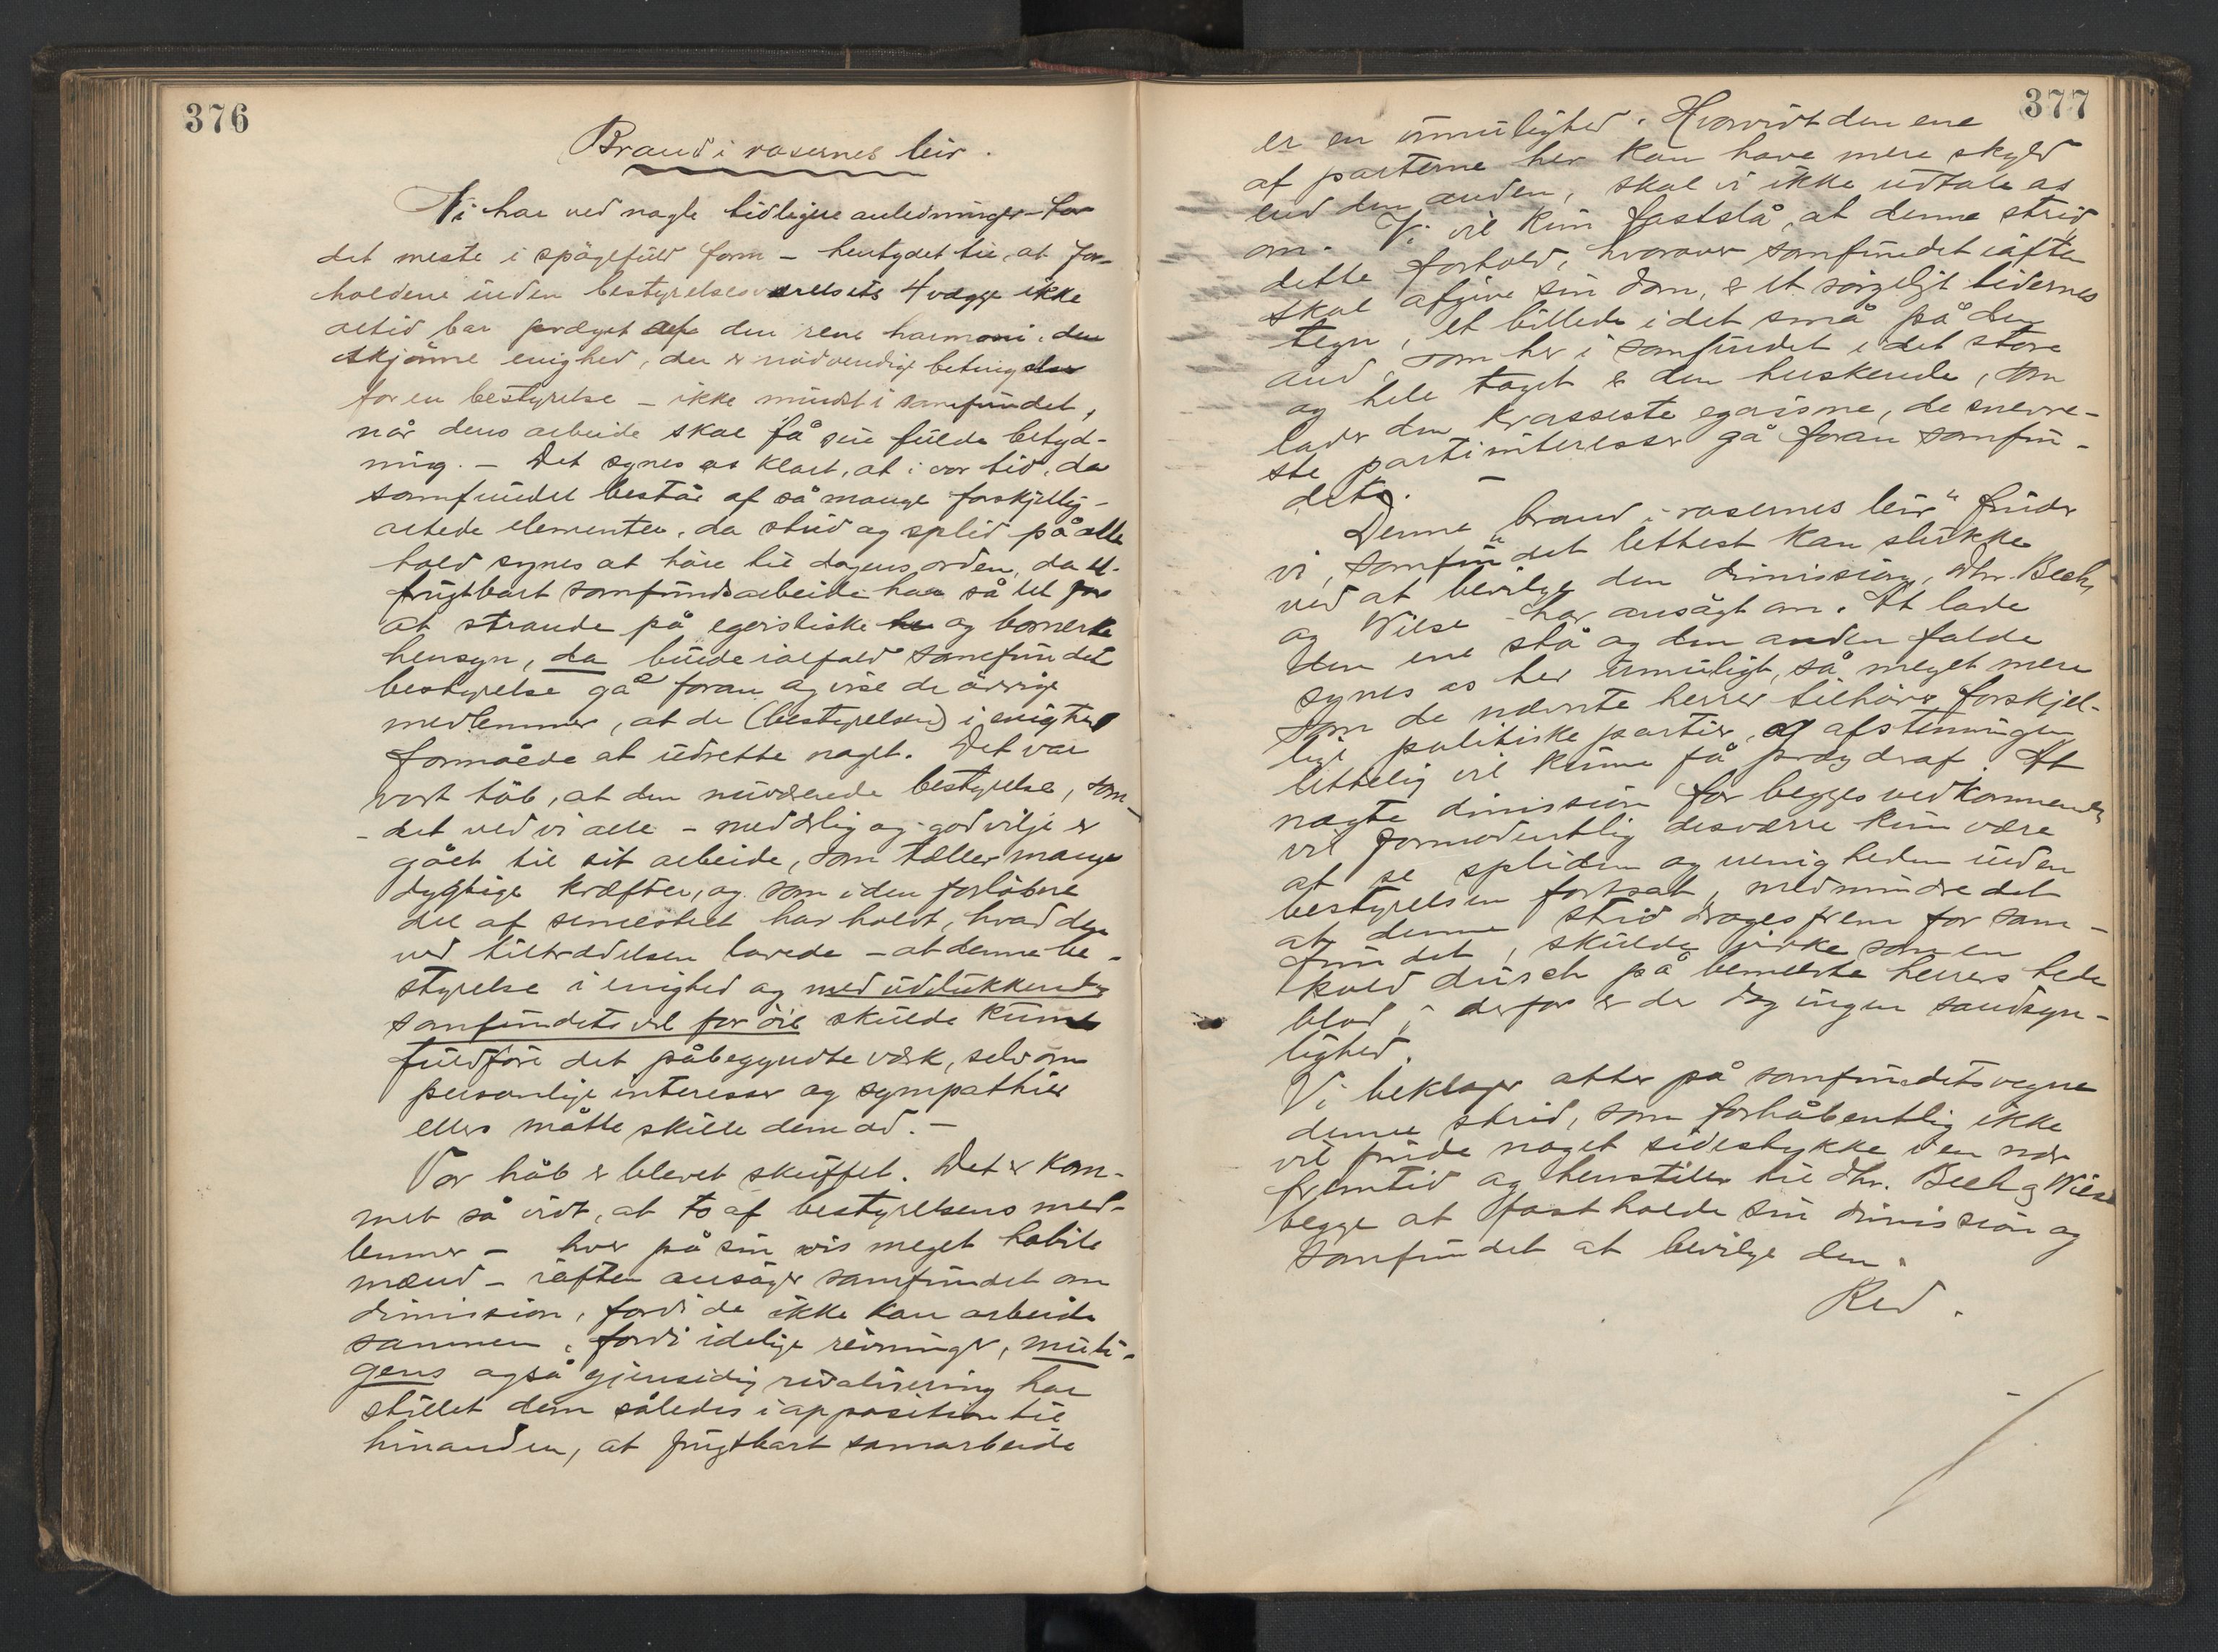 376
Brand i rosernes leir.
Vi har ved nogle tidligere anledninger – for
det meste i spögefuld form – hentydet til, at for-
holdene inden bestyrelsesværelsets 4 vægge ikke
altid bar præget af den rene harmoni, den
skjönne enighed, der er nödvendige betingelser
for en bestyrelse – ikke mindst i samfundet,
når dens arbeide skal få sin fulde betyd-
ning. – Det synes os klart, at i vor tid, da
samfundet består af så mange forskjellig-
artede elementer, da strid og splid på alle
hold synes at höre til dagens orden, da et
frugtbart samfundsarbeide har så let for
at strande på egoistiske og bornerte
hensyn, da burde ialfald samfundets
bestyrelse gå foran og vise de övrige
medlemmer, at de (bestyrelsen) i enighed
formåede at udrette noget. Det var
vort håb, at den nuværende bestyrelse, som
– det ved vi alle – med ærlig og god vilje er
gået til sit arbeide, som tæller mange
dygtige kræfter, og som i den forløbne
del af semestret har holdt, hvad den
ved tiltrædelsen lovede – at denne be-
styrelse i enighed og med udelukkende
samfundets vel for öie skulde kunne
fuldföre det påbegyndte værk, selv om
personlige interesser og sympathier
ellers måtte skille dem ad. –
Vor håb er blevet skuffet. Det er kom-
met så vidt, at to af bestyrelsens med-
lemmer – hver på sin vis meget habile
mænd – iaften ansöger samfundet om
dimission, fordi de ikke kan arbeide
sammen, fordi idelige rivninger, muli-
gens også gjensidig rivalisering har
stillet dem således i opposition til
hinanden, at frugtbart samarbeide
377
er en umulighed. Hvorvidt den ene
af parterne her kan have mere skyld
end den anden, skal vi ikke udtale os
om. Vi vil kun fastslå, at denne strid,
dette forhold, hvorover samfundet iaften
skal afgive sin dom, er et sörgeligt tidernes
tegn, et billede i det små på den
ånd, som her i samfundet i det store
og hele taget er den herskende, som
lader den krasseste egoisme, de snevre-
ste partiinteresser gå foran samfun-
dets. –
Denne "brand i rosernes leir" finder
vi, samfundet lettest kan slukke
ved at bevilge den dimission, dhr. Bech
og Wilse har ansögt om. At lade
den ene stå og den anden falde
synes os her umuligt, så meget mere
som de nævnte herrer tilhörer forskjel-
lige politiske partier, og afstemningen
lettelig vil kunne få præg deraf. At
nægte dimission for begges vedkommende
vil formodentlig desværre kun være
at se spliden og uenigheden inden
bestyrelsen fortsat, medmindre det
at denne strid drages frem for sam-
fundet, skulde virke som en
kold dusch på bemeldte herrers hede
blod; derfor er der dog ingen sandsyn-
lighed.
Vi beklager atter på samfundets vegne
denne strid, som forhåbentlig ikke
vil finde noget sidestykke i en nær
fremtid og henstiller til dhr. Bech og Wilse
begge at fastholde sin dimission og
samfundet at bevilge den.
Red.